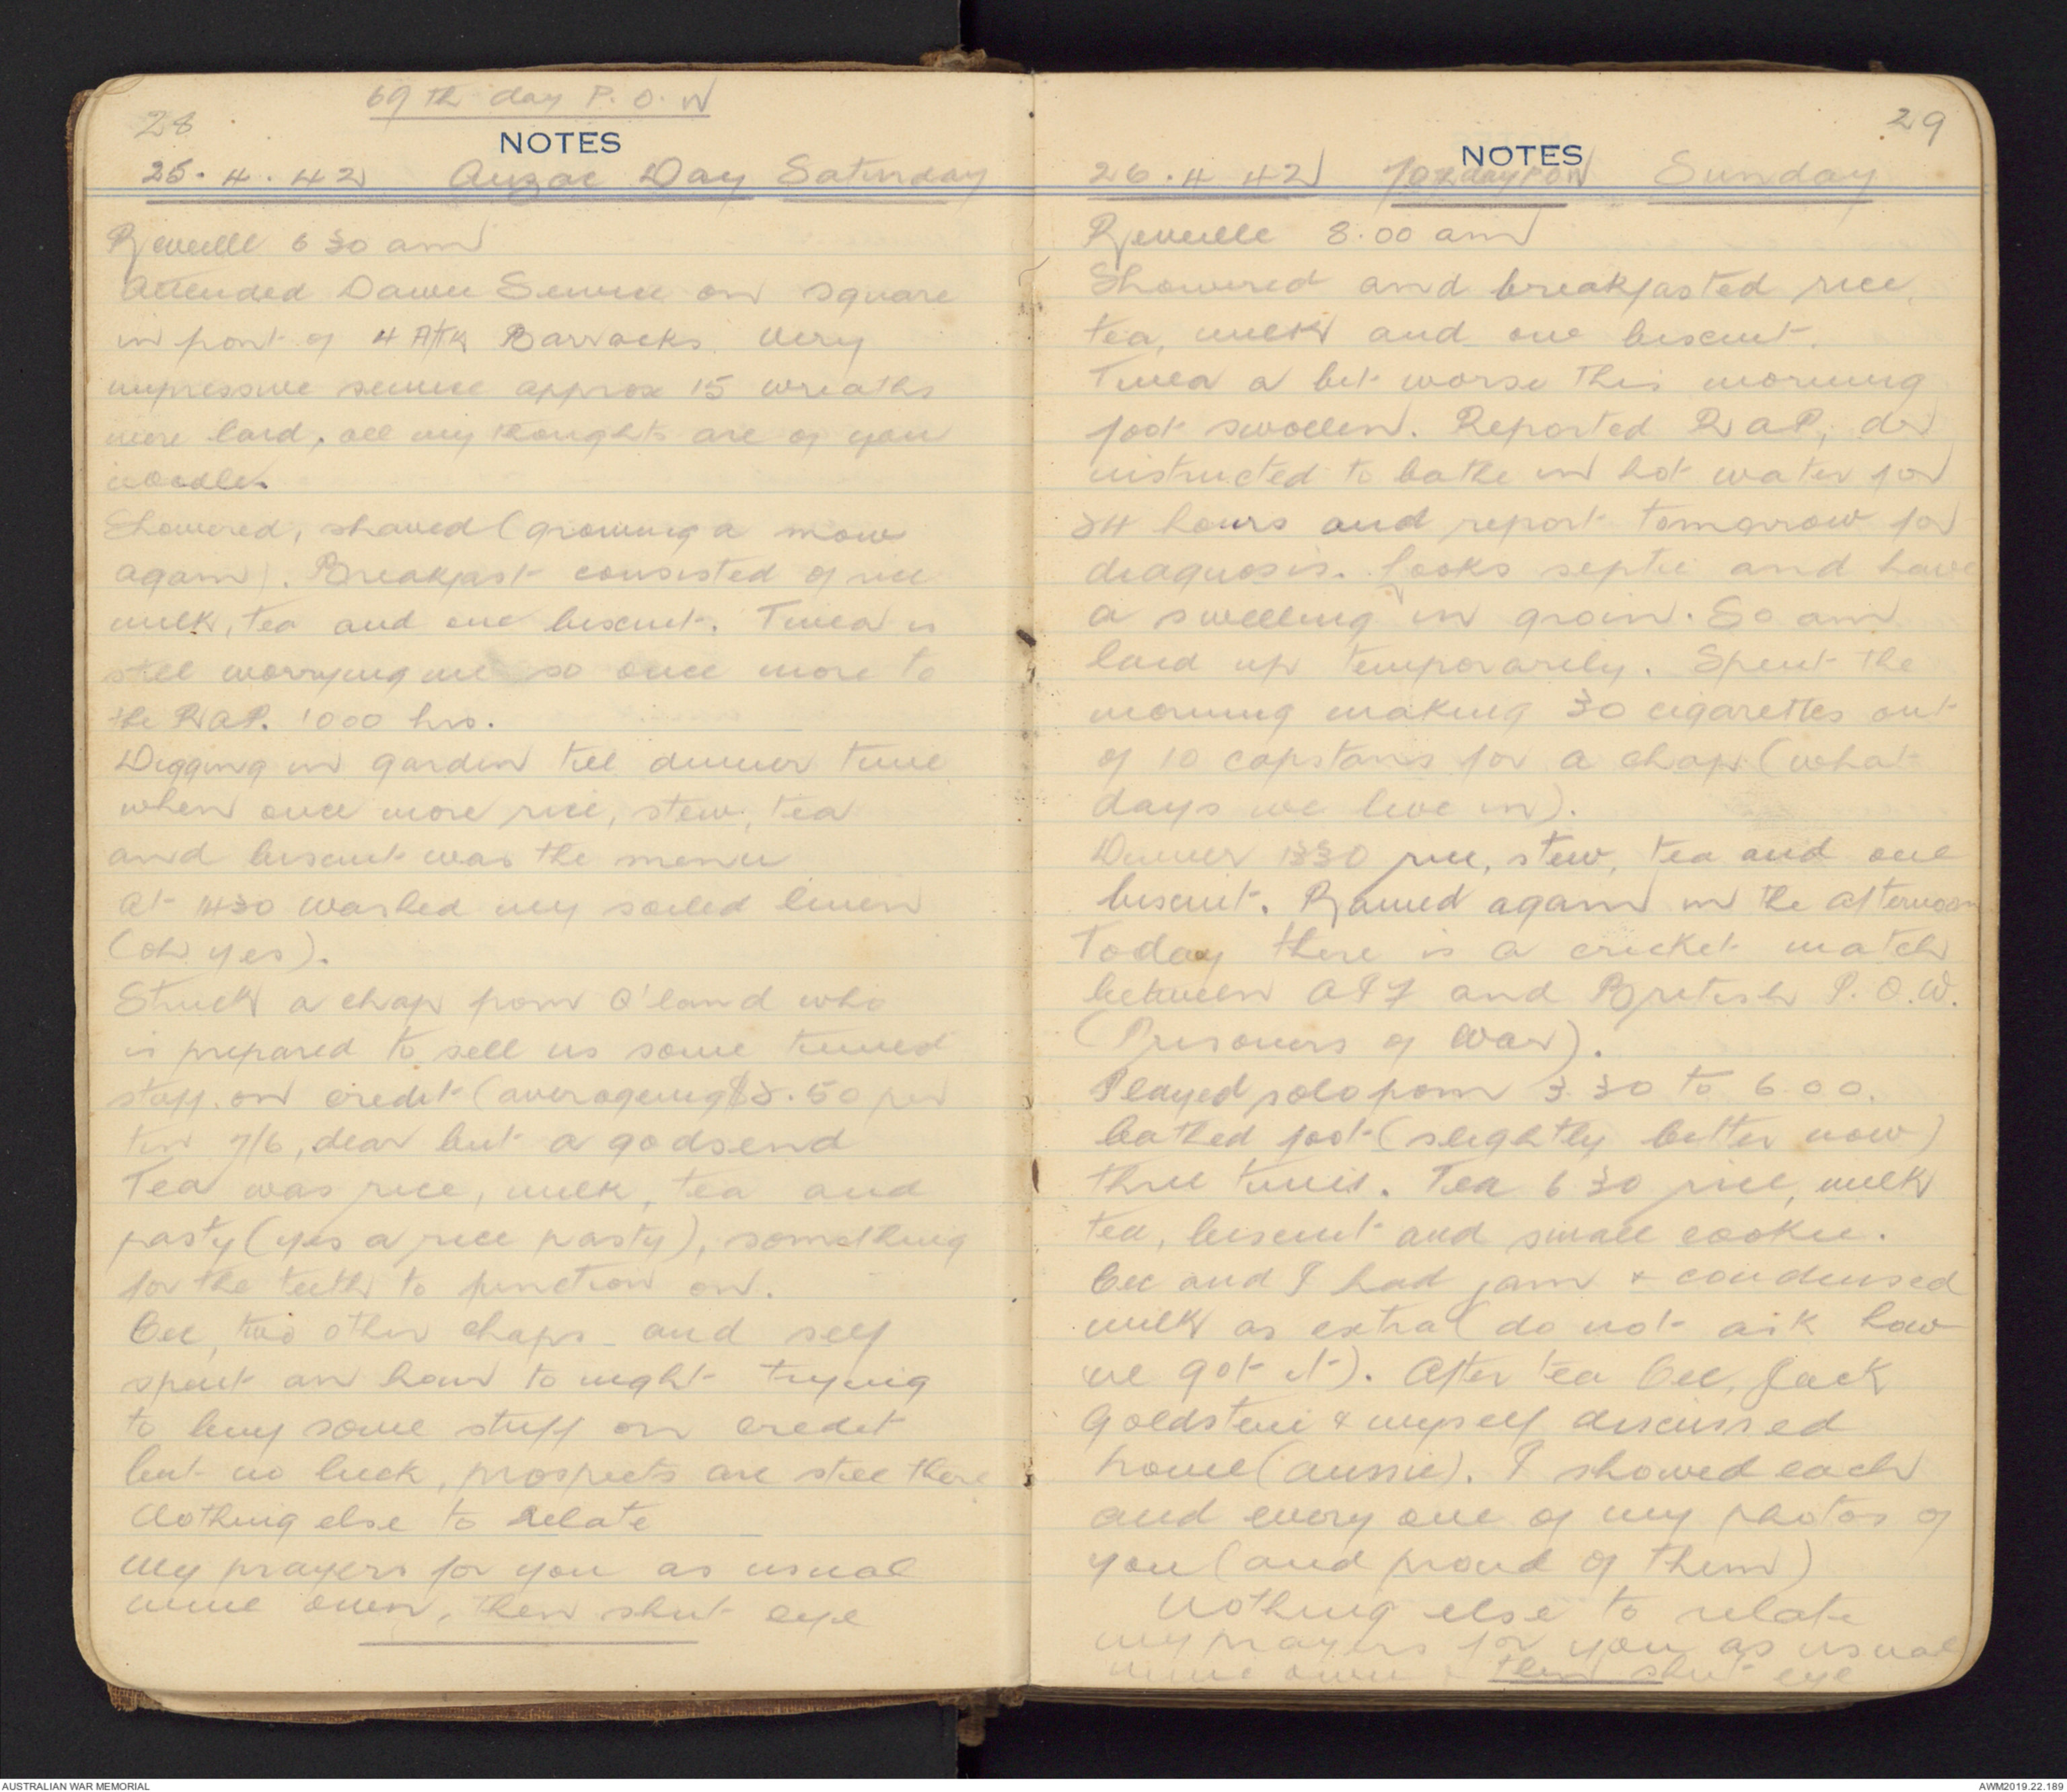 28
69th day P.O.W
NOTES
25.4.42 Anzac Day Saturday
Reveille 6 30 am
Attended Dawn Service on square
in front of 4 A/tk Barracks. Very
impressive service approx 15 wreaths
were laid, all my thoughts are of you
Showered, shaved (growing a mow
again). Breakfast consisted of rice
milk, tea and one biscuit. Tinea is
still worrying me so once more to
the R.A.P. 1000 hrs.
Digging in garden till dinner time
when once more rice, stew, tea
and biscuit was the menu
At 1430 washed my soiled linen
(oh yes).
Struck a chap from Q'land who
is prepared to sell us some tinned
stuff on credit (averageing $3.50 per
tin 7/6, dear but a godsend
Tea was rice, milk, tea and
pasty (yes a rice pasty), something
for the teeth to function on.
Cec, two other chaps and self
spent an hour to night trying
to buy some stuff on credit
but no luck, prospects are still there
Nothing else to relate
My prayers for you as usual
mine own, then shut eye
29
NOTES
26.4 42 70th day POW Sunday
Reveille 8.00 am
Showered and breakfasted rice,
tea, milk and one biscuit.
Tinea a bit worse this morning
foot swollen. Reported R.A.P, dr
instructed to bathe in hot water for
24 hours and report tomorrow for
diagnosis. Looks septic and have
a swelling in groin. So am
laid up temporarily. Spent the
morning making 30 cigarettes out
of 10 capstans for a chap (what
days we live in).
Dinner 1330 rice, stew, tea and one
biscuit. Rained again in the afternoon
Today there is a cricket match
between AIF and British P.O.W.
(Prisoners of War).
Played solo from 3.30 to 6.00.
bathed foot (slightly better now)
three times. Tea 6 30 rice, milk
tea, biscuit and small cookie.
Cec and I had jam & condensed
milk as extra (do not ask how
we got it). After tea Cec, Jack
Goldstein & myself discussed
home (aussie). I showed each
and every one of my photos of
you (and proud of them)
Nothing else to relate
my prayers for you as usual
mine own then shut eye
AUSTRALIAN WAR MEMORIAL
AWM2019.22.189